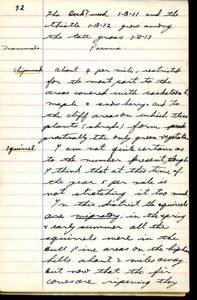 92
The Dock? weed 1-18-11 and the
thistle 1-18-12 grew among
the tall grass 1-8-13
Mammals Fauna
Chipmunk about 4 per mile, restricted
for the most part to the
areas covered with
maple & and to
the cliff areas on which these
plants (shrubs) form
practically the only green vegetation
Squirrel I am not quite certain as
to the number present, though
I think that at this time of
the year 5 per mile is
not stretching it too much
In this district the squirrels
are migratory, in the spring
& early summer all the
squirrels were in the
Bull Pine area on the
hills about 2 miles away
but now that the fir
cones are ripening they